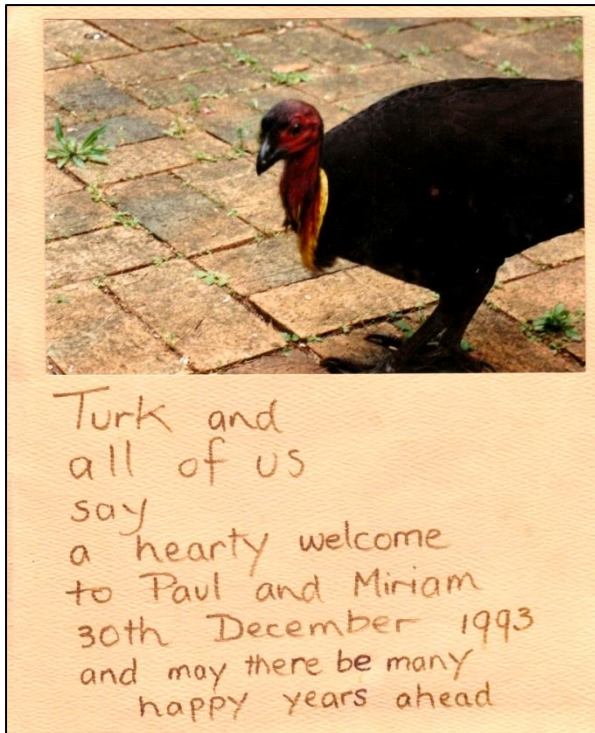 Turk and
all of us
say
a hearty welcome
to Paul and Miriam
30th December 1993
and may there be many
happy years ahead